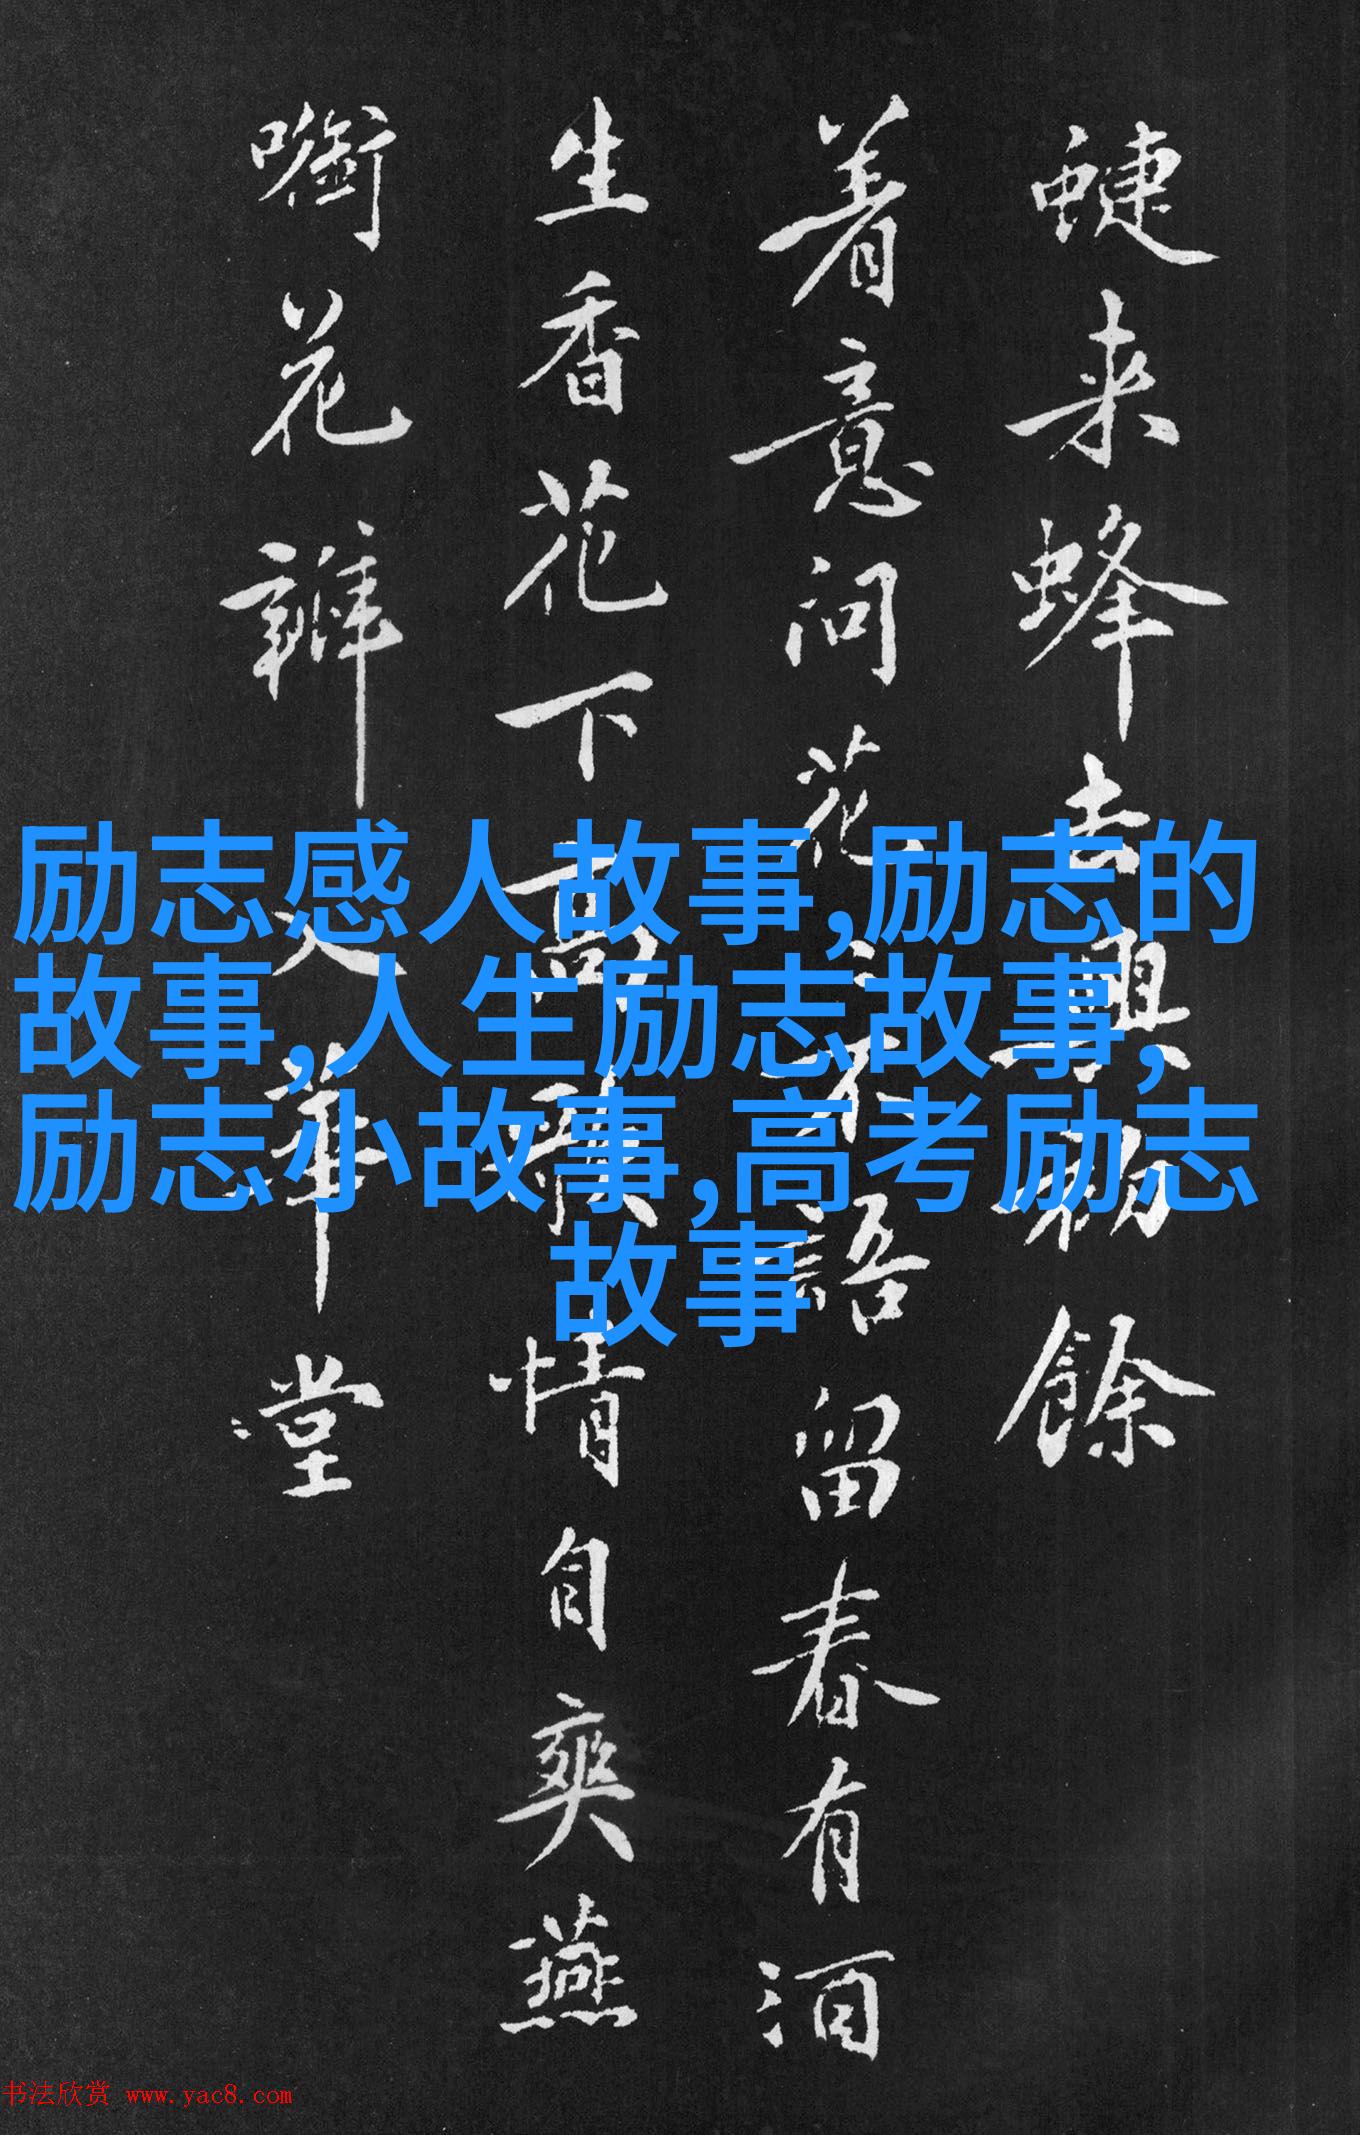 蜨来蜂去興初餘
着意问花〻不語留春有酒
生香花下高歌情自爽燕
花瓣入華堂
励志感人故事,励志的
故事,人生励志故事,
励志小故事,高考励志
故事
书法欣赏 www.yac8.com